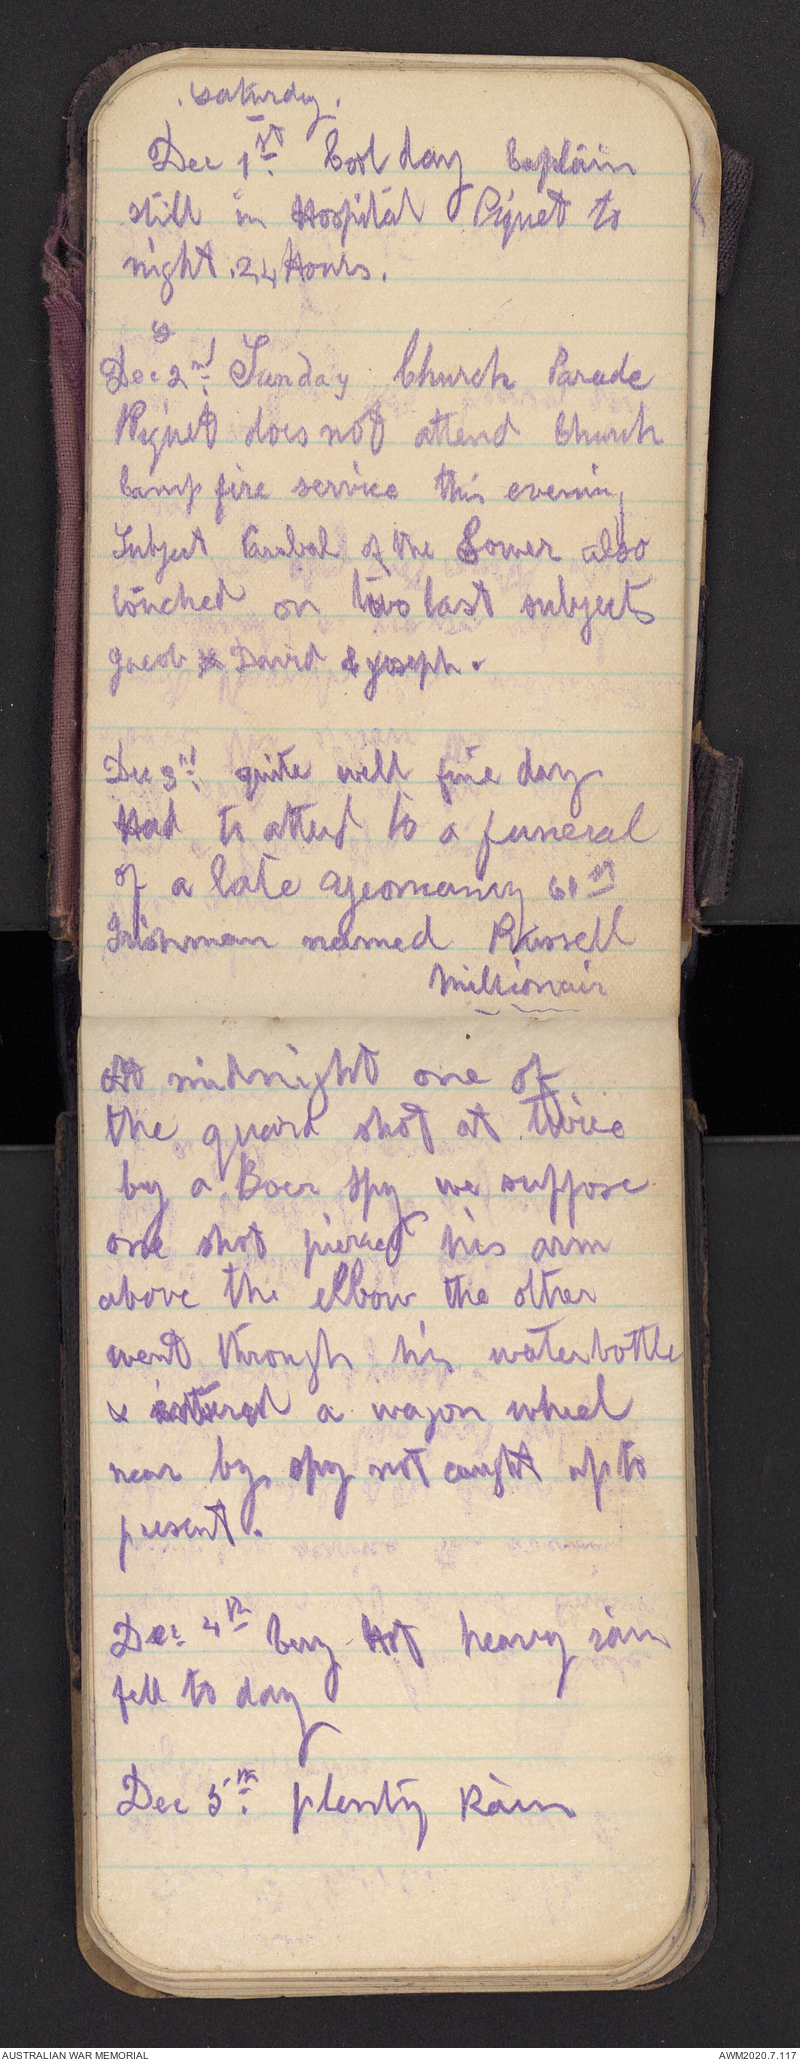 Saturday.
Dec 1st. Cool day Captain
still in Hospital Piquet to
night. 24 Hours.
Dec 2nd. Sunday Church Parade
Piquet does not attend Church
Camp fire service this evening
Subject Parabal of the Sower also
touched on two last subjects
Jacob & David & Joseph.
Dec 3rd. quite well fine day
Had to attend to a funeral
of a late Yeomanry 61st
Irishman named Russell
Millionair
At midnight one of
the guard shot at twice
by a Boer spy we suppose
one shot pierced his arm
above the elbow the other
went through his waterbottle
& entered a wagon wheel
near by, spy not caught up to
present.
Dec. 4th very Hot heavy rain
fell to day
Dec 5th. plenty Rain
AUSTRALIAN WAR MEMORIAL
AWM2020.7.117